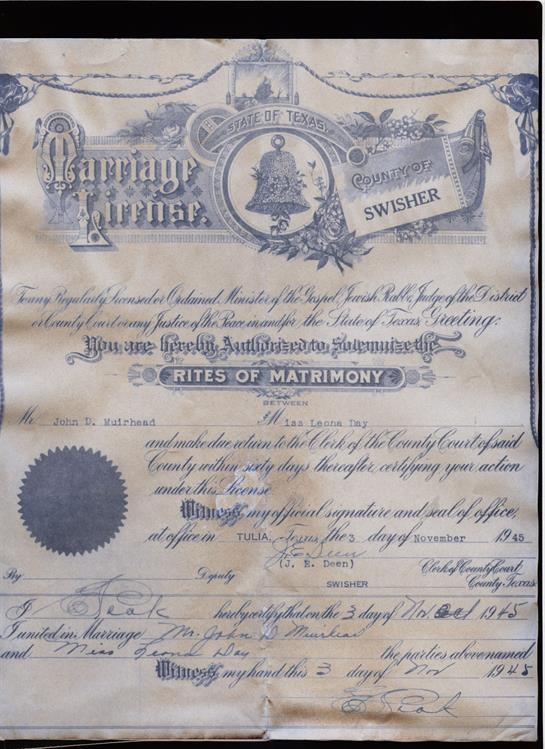 STATE OF TEXAS,
Marriage
License.
COUNTY OF
SWISHER
To any Regularly Licensed or Ordained Minister of the Gospel, Jewish Rabbi, Judge of the District
or County Court or any Justice of the Peace in and for the State of Texas, Greeting:
You are hereby Authorized to Solemnize the
RITES OF MATRIMONY
BETWEEN
Mr. John D. Muirhead and Miss Leona Day
and make due return to the Clerk of the County Court of said
County within sixty days thereafter, certifying your action
under this License.
Witness my official signature and seal of office,
at office in TULIA, Texas the 3 day of November 1945
J. E. Deen
(J. E. Deen) Clerk of County Court
By Deputy SWISHER County, Texas
I Peak hereby certify that on the 3 day of Nov. 1945
I united in Marriage Mr. John D Muirhead
and Miss Leona Day the parties above named
Witness my hand this 3 day of Nov 1945
Peak